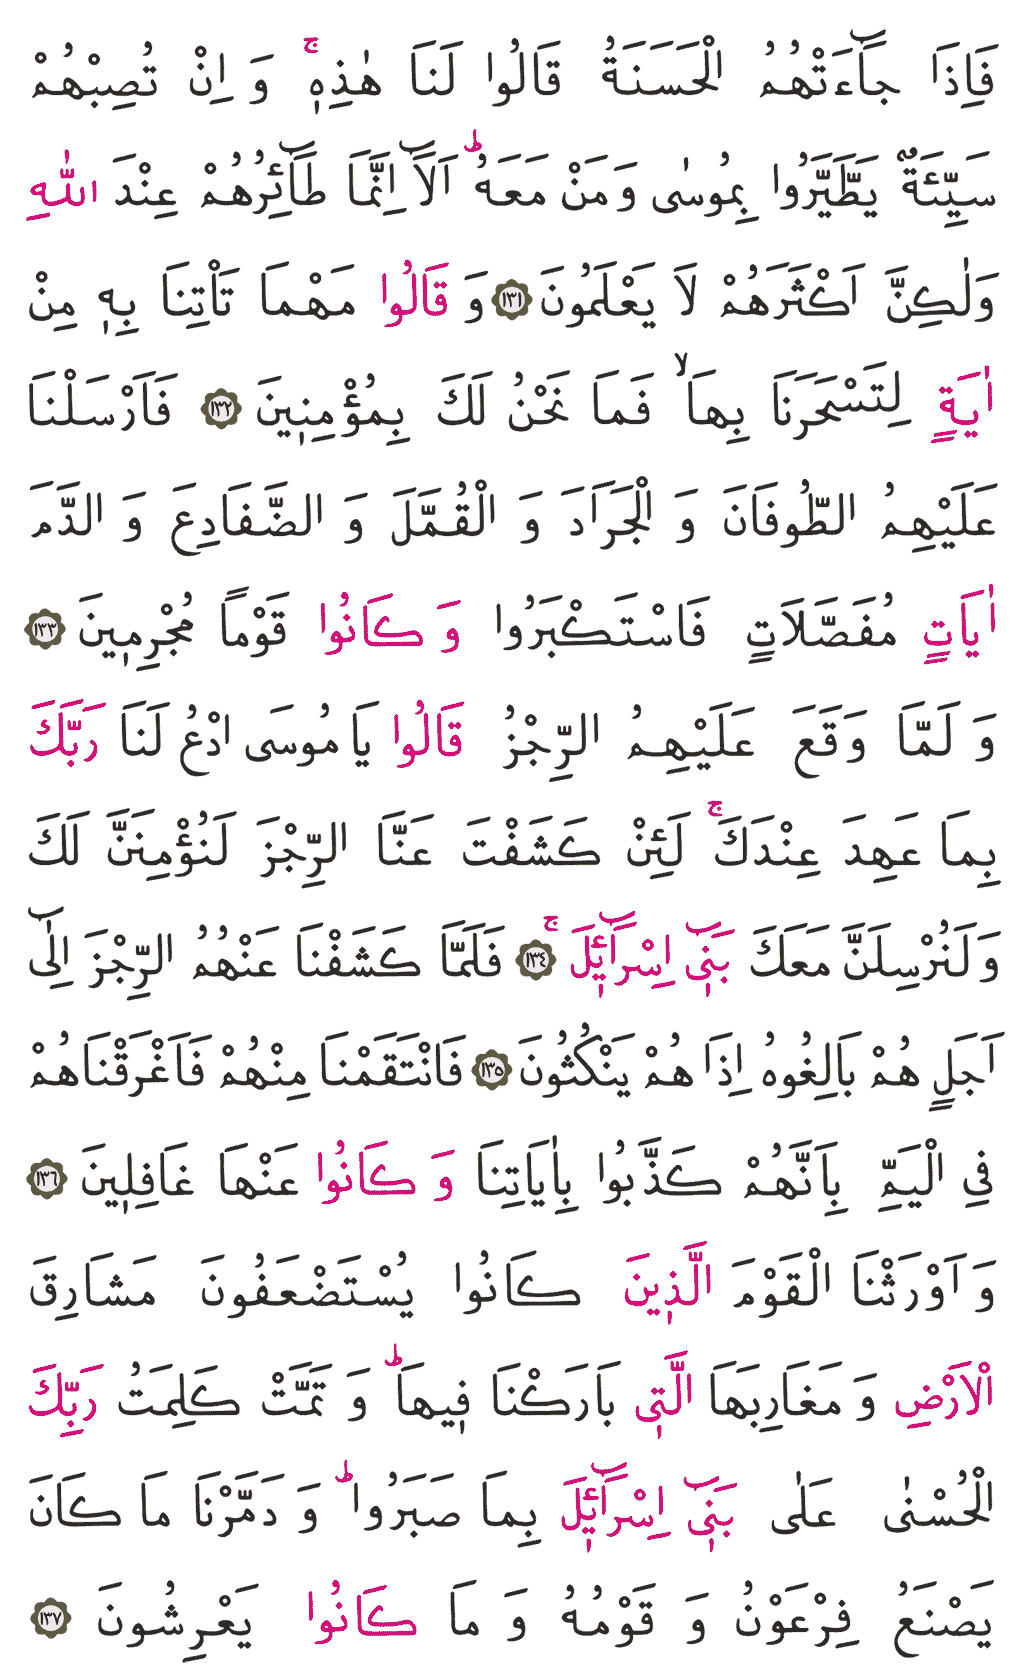 فَاِذَا جَٓاءَتْهُمُ الْحَسَنَةُ قَالُوا لَنَا هٰذِهٖۚ وَ اِنْ تُصِبْهُمْ
سَيِّئَةٌ يَطَّيَّرُوا بِمُوسٰى وَ مَنْ مَعَهُۜ اَلَٓا اِنَّمَا طَٓائِرُهُمْ عِنْدَ اللّٰهِ
وَلٰكِنَّ اَكْثَرَهُمْ لَا يَعْلَمُونَ ﴿١٣١﴾ وَ قَالُوا مَهْمَا تَأْتِنَا بِهٖ مِنْ
اٰيَةٍ لِتَسْحَرَنَا بِهَاۙ فَمَا نَحْنُ لَكَ بِمُؤْمِنٖينَ ﴿١٣٢﴾ فَاَرْسَلْنَا
عَلَيْهِمُ الطُّوفَانَ وَ الْجَرَادَ وَ الْقُمَّلَ وَ الضَّفَادِعَ وَ الدَّمَ
اٰيَاتٍ مُفَصَّلَاتٍ فَاسْتَكْبَرُوا وَ كَانُوا قَوْمًا مُجْرِمٖينَ ﴿١٣٣﴾
وَ لَمَّا وَقَعَ عَلَيْهِمُ الرِّجْزُ قَالُوا يَا مُوسَى ادْعُ لَنَا رَبَّكَ
بِمَا عَهِدَ عِنْدَكَۚ لَئِنْ كَشَفْتَ عَنَّا الرِّجْزَ لَنُؤْمِنَنَّ لَكَ
وَلَنُرْسِلَنَّ مَعَكَ بَنٖٓى اِسْرَٓائٖلَۚ ﴿١٣٤﴾ فَلَمَّا كَشَفْنَا عَنْهُمُ الرِّجْزَ اِلٰٓى
اَجَلٍ هُمْ بَالِغُوهُ اِذَا هُمْ يَنْكُثُونَ ﴿١٣٥﴾ فَانْتَقَمْنَا مِنْهُمْ فَاَغْرَقْنَاهُمْ
فِي الْيَمِّ بِاَنَّهُمْ كَذَّبُوا بِاٰيَاتِنَا وَ كَانُوا عَنْهَا غَافِلٖينَ ﴿١٣٦﴾
وَ اَوْرَثْنَا الْقَوْمَ الَّذٖينَ كَانُوا يُسْتَضْعَفُونَ مَشَارِقَ
الْاَرْضِ وَ مَغَارِبَهَا الَّتٖى بَارَكْنَا فٖيهَاۜ وَ تَمَّتْ كَلِمَتُ رَبِّكَ
الْحُسْنٰى عَلٰى بَنٖٓى اِسْرَٓائٖلَ بِمَا صَبَرُواۜ وَ دَمَّرْنَا مَا كَانَ
يَصْنَعُ فِرْعَوْنُ وَ قَوْمُهُ وَ مَا كَانُوا يَعْرِشُونَ ﴿١٣٧﴾